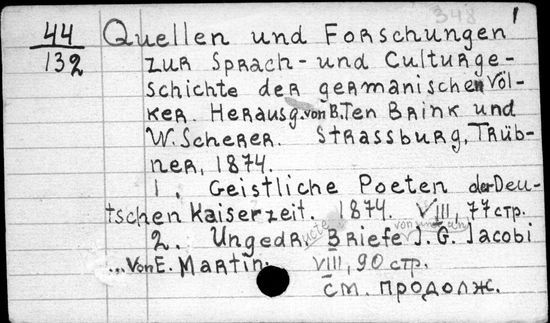 348 1
44
132
Quellen und Forschungen
zur Sprach- und Culturge-
schichte der germanischen Völ-
ker. Herausg. von B. Ten Brink und
W. Scherer. Strassburg, Trüb-
ner, 1874.
1. Geistliche Poeten der Deu-
tschen Kaiserzeit. 1874. VIII, 77 стр.
2. Ungedr. Briefe J. G. Jacobi
... von E. Martin. VIII, 90 стр.
см. продолж.